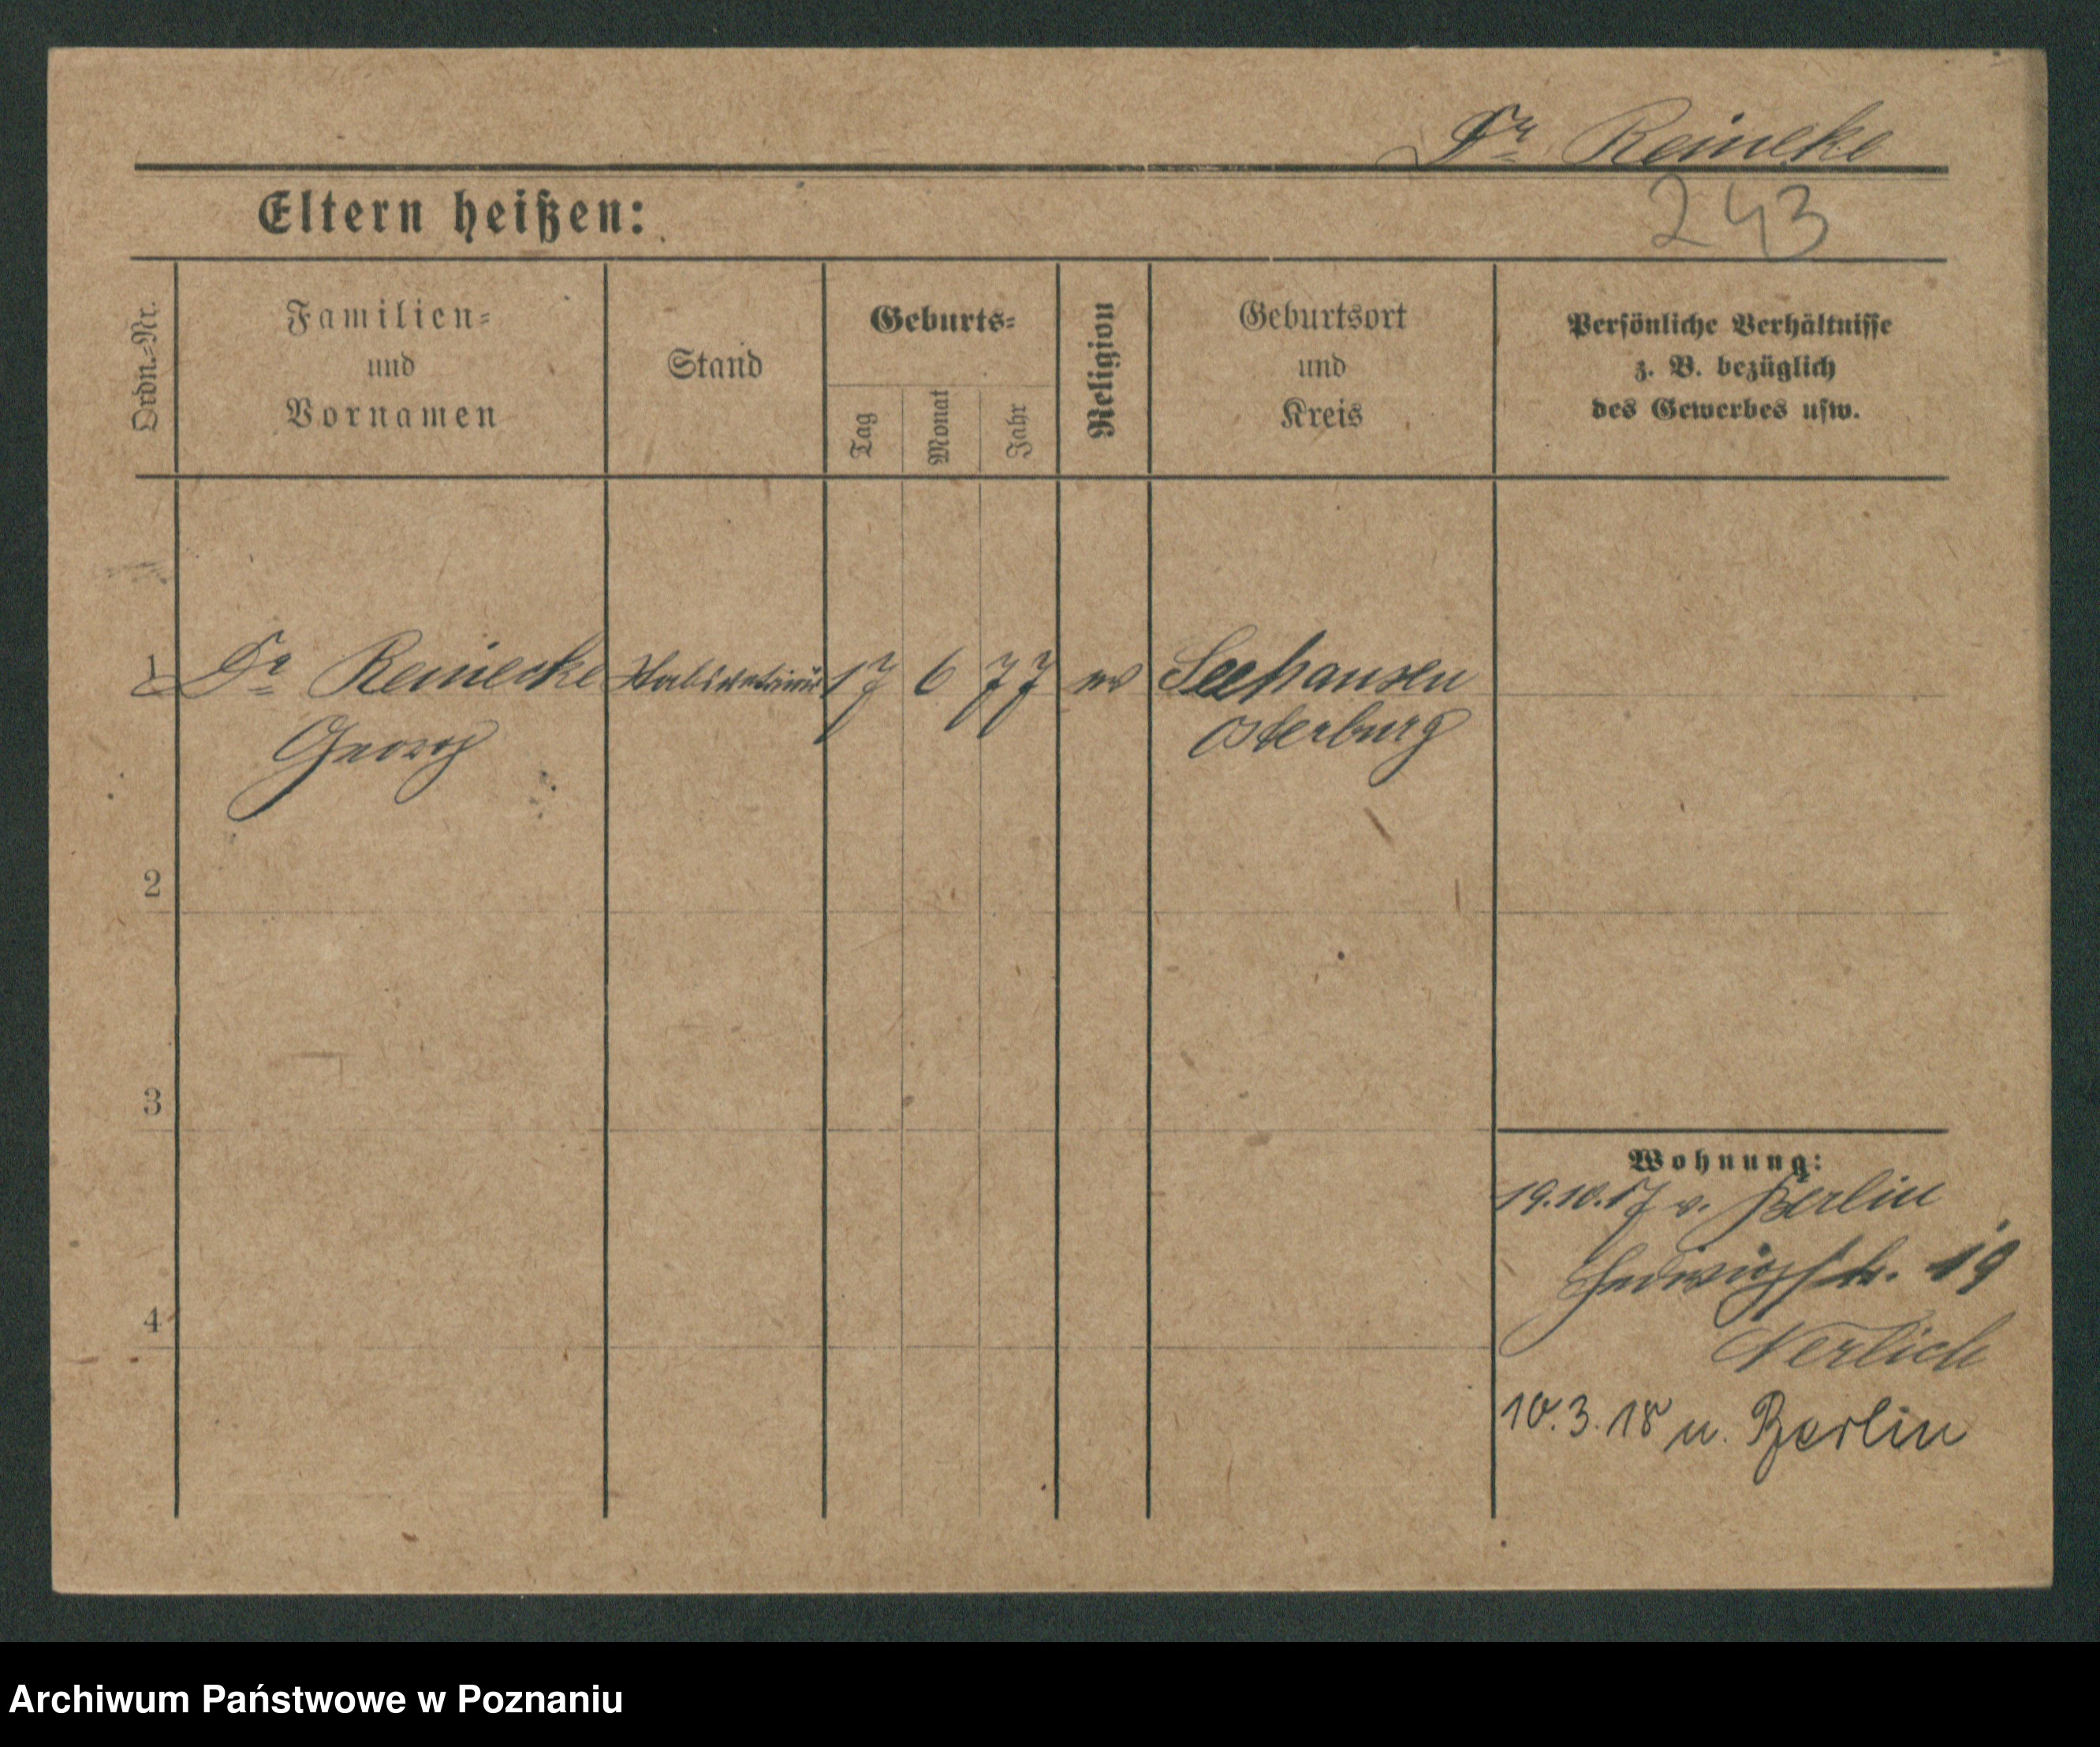 Dr Reineke
243
Eltern heißen:
Ordn.-Nr.
Familien-
und
Vornamen
Stand
Geburts-
Tag
Monat
Jahr
Religion
Geburtsort
und
Kreis
Persönliche Verhältnisse
z. B. bezüglich
des Gewerbes usw.
1 Dr Reinecke Stabsveterinär 17 6 77 ev Seehausen
Georg Osterburg
2
3
4
Wohnung:
19.10.17 v. Berlin
Hedwigstr. 19
Nerlich
10.3.18 n. Berlin
Archiwum Państwowe w Poznaniu